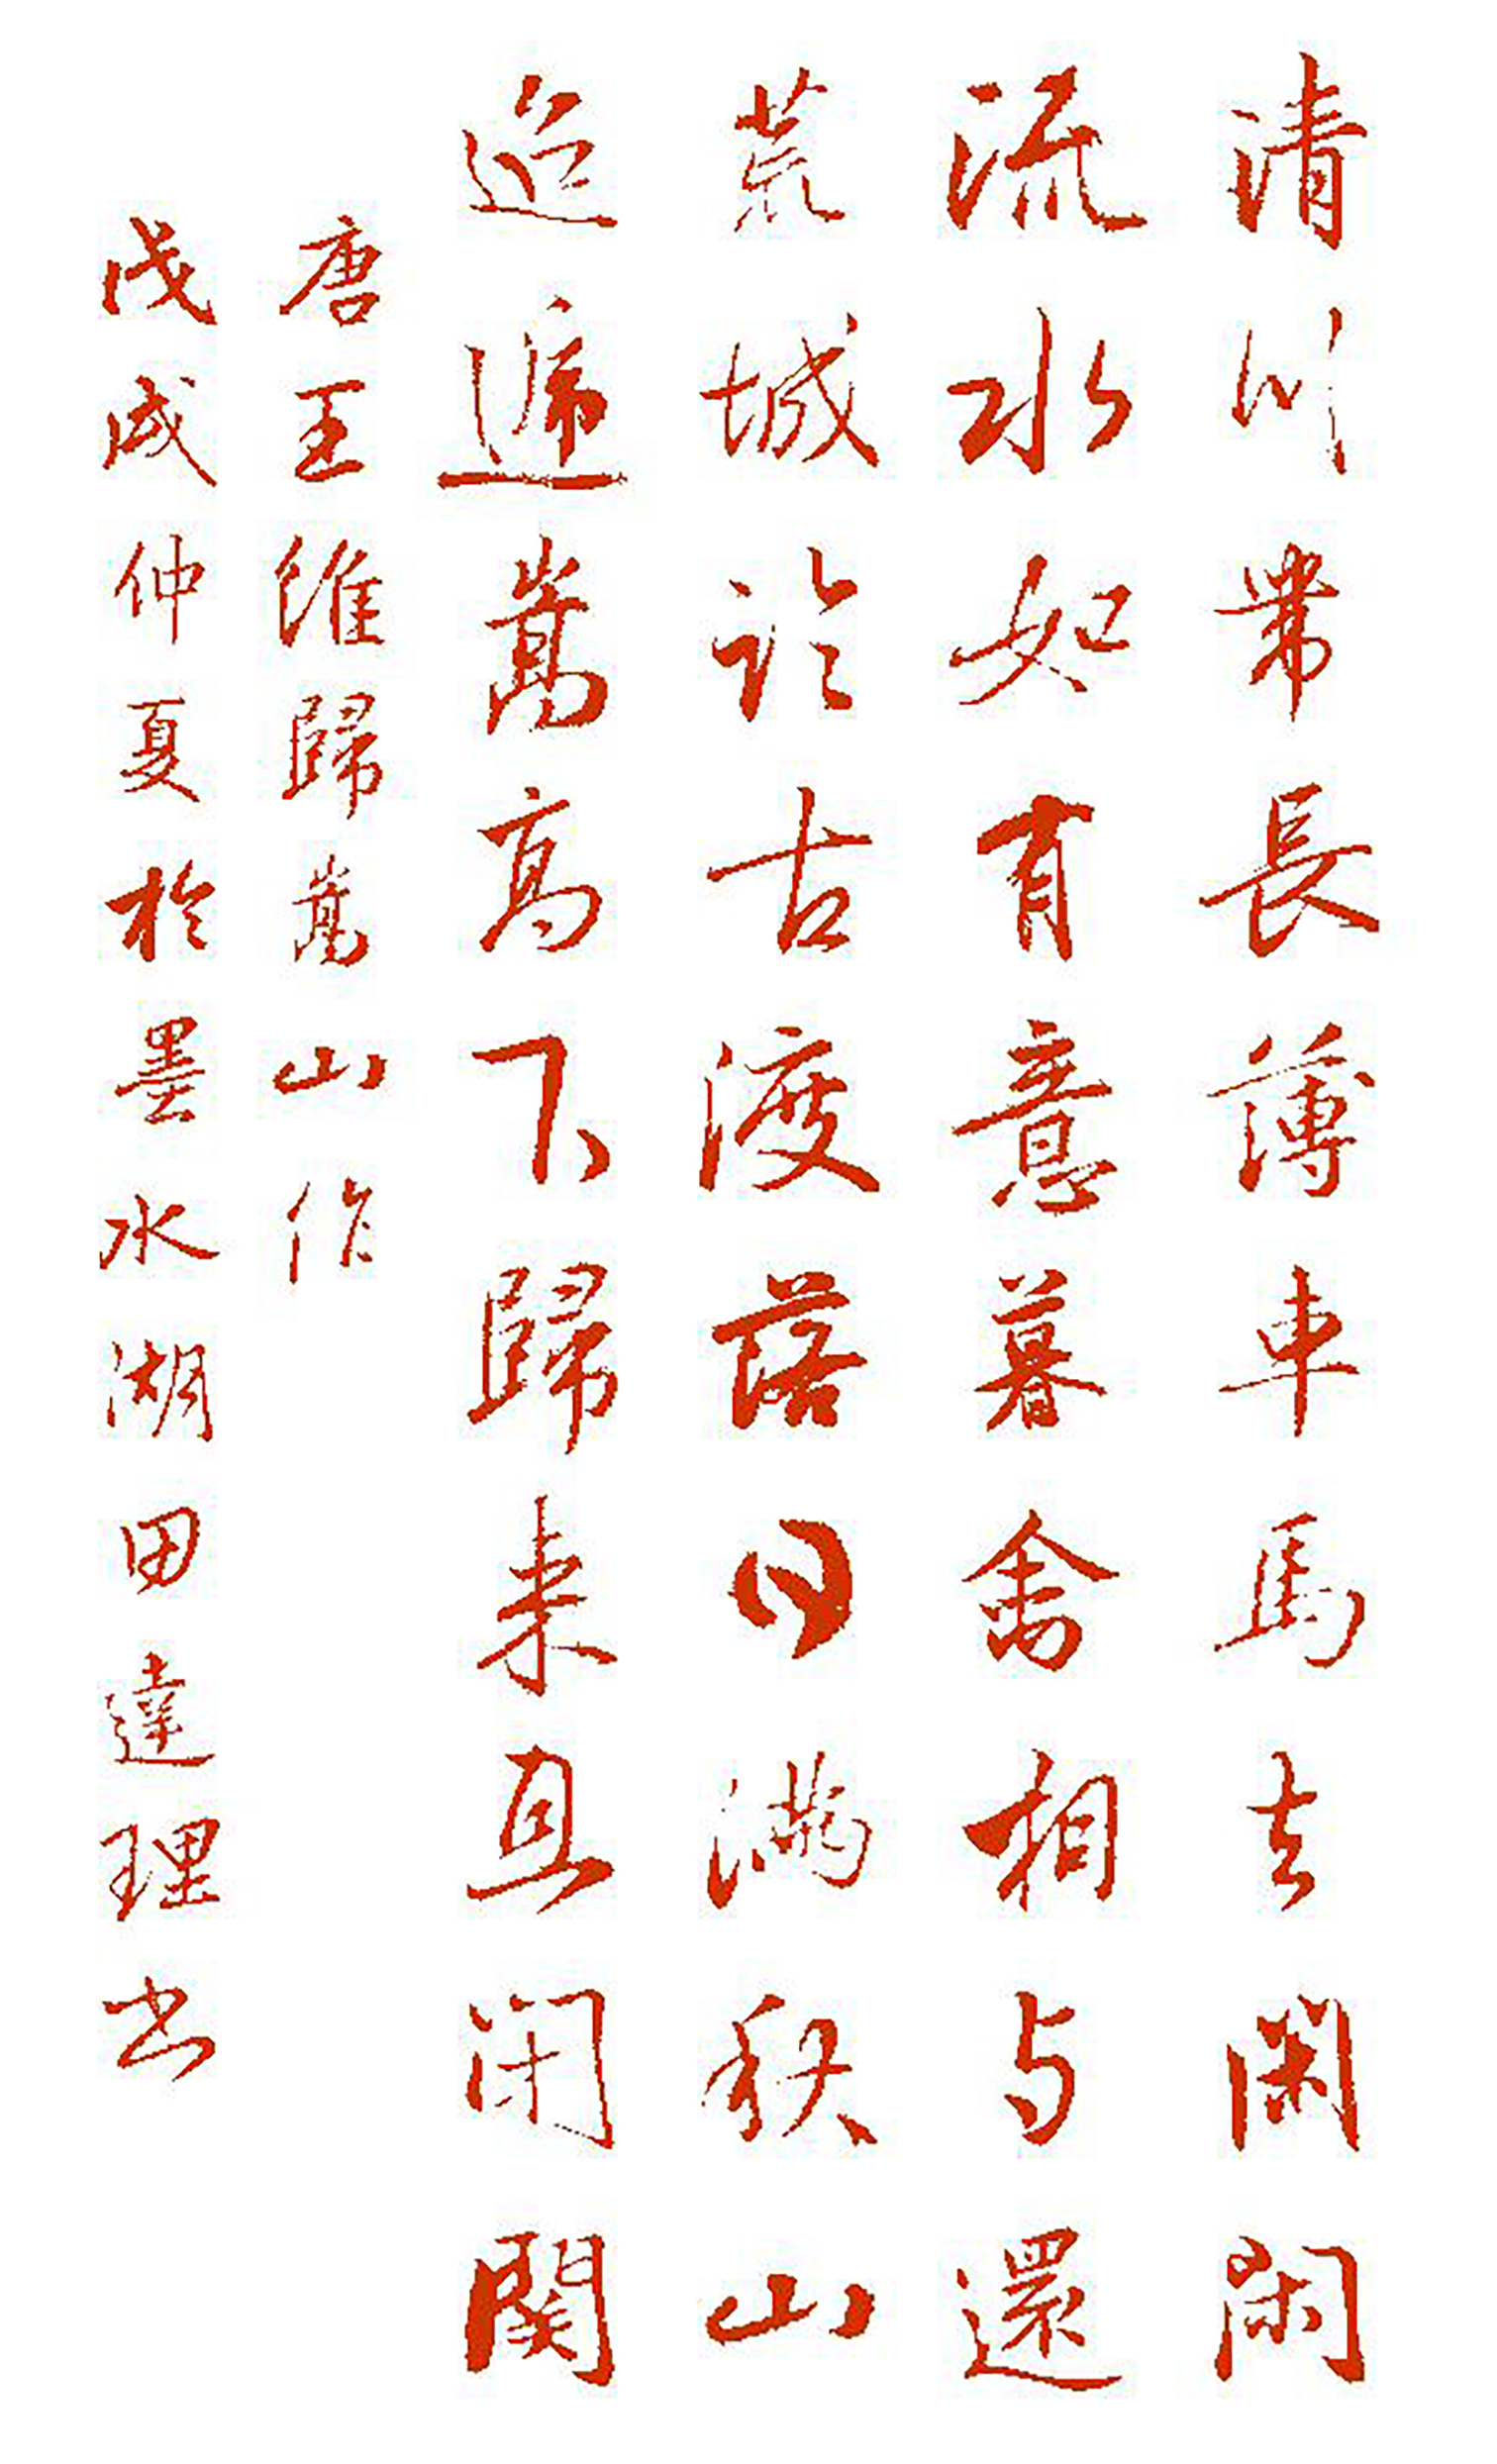 清川帶長薄車馬去閑閑
流水如有意暮禽相与還
荒城临古渡落日滿秋山
迢遞嵩高下歸来且闭関
唐王維歸嵩山作
戊戌仲夏於墨水湖田達理书